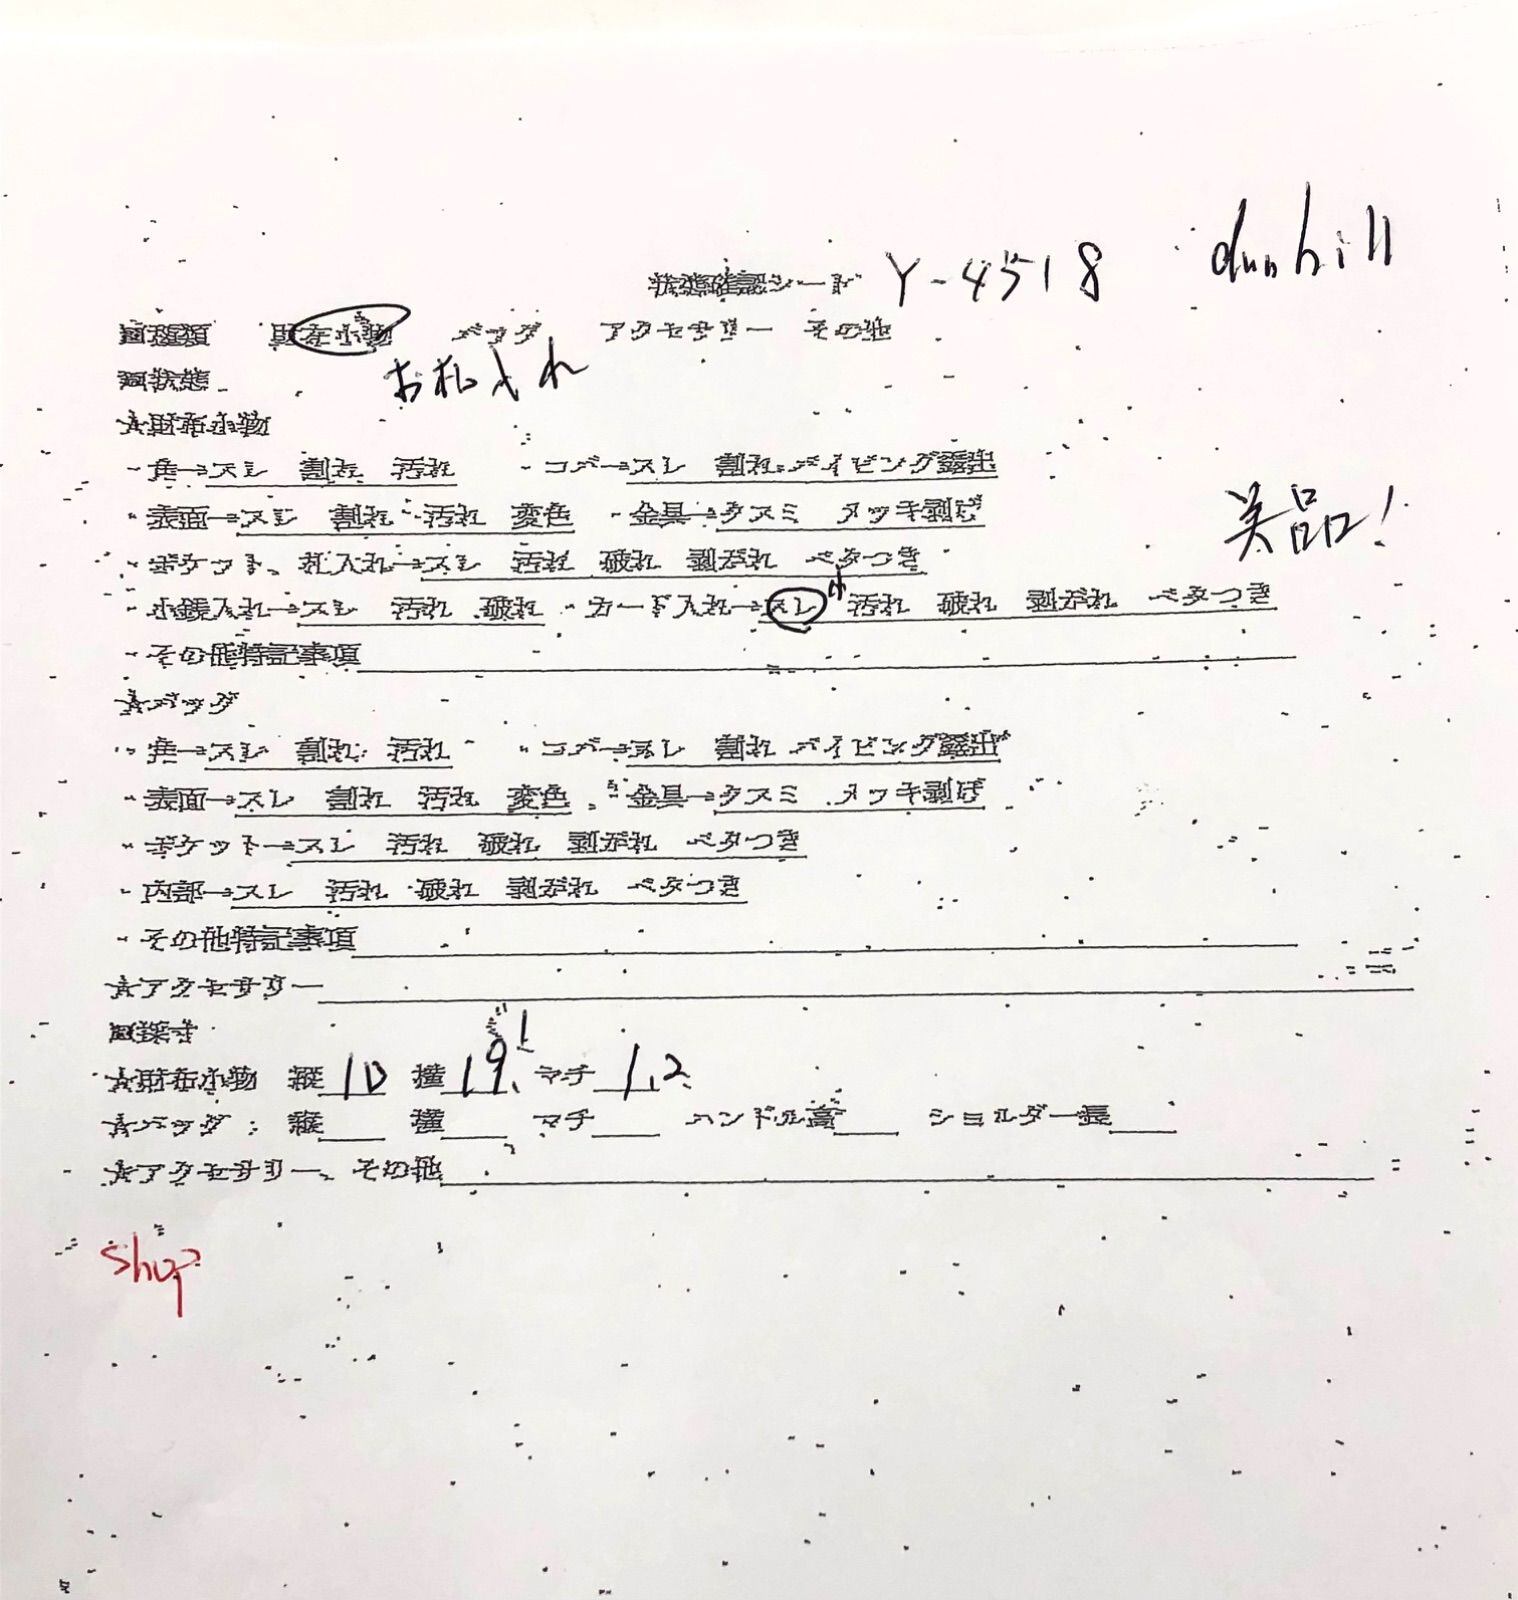 状態確認シート Y-4518 dunhill
■種類 財布小物 バッグ アクセサリー その他
■状態 お札入れ
☆財布小物
・角→スレ 割れ 汚れ ・コバ→スレ 割れ パイピング露出
・表面→スレ 割れ 汚れ 変色 ・金具→クスミ メッキ剥げ
美品!
・ポケット、札入れ→スレ 汚れ 破れ 剥がれ ベタつき
・小銭入れ→スレ 汚れ 破れ ・カード入れ→スレ 小 汚れ 破れ 剥がれ ベタつき
・その他特記事項
☆バッグ
・角→スレ 割れ 汚れ ・コバ→スレ 割れ パイピング露出
・表面→スレ 割れ 汚れ 変色 ・金具→クスミ メッキ剥げ
・ポケット→スレ 汚れ 破れ 剥がれ ベタつき
・内部→スレ 汚れ 破れ 剥がれ ベタつき
・その他特記事項
☆アクセサリー
■採寸
☆財布小物 縦 10 横 19. マチ 1.2
☆バッグ 縦 横 マチ ハンドル高 ショルダー長
☆アクセサリー、その他
shop